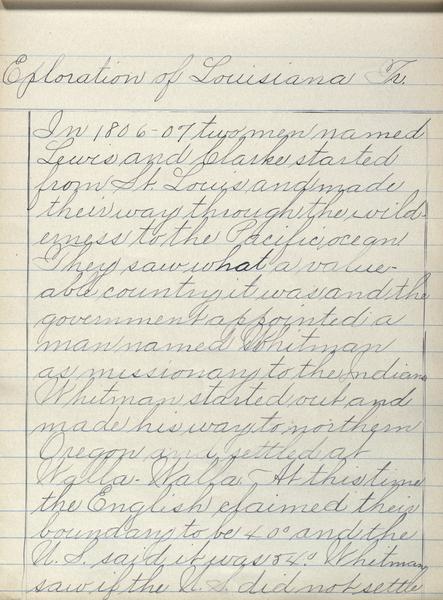 Eploration of Louisiana Tr.
In 1806-07 two men named
Lewis and Clarke started
from St. Louis and made
their way through the wild-
erness to the Pacific ocean
They saw what a value-
able country it was and the
government appointed a
man named Whitman
as missionary to the Indians
Whitman started out and
made his way to northern
Oregon and settled at
Walla-Walla - At this time
the English claimed their
boundary to be 40° and the
U.S. said it was 54°. Whitman
saw if the U.S. did not settle